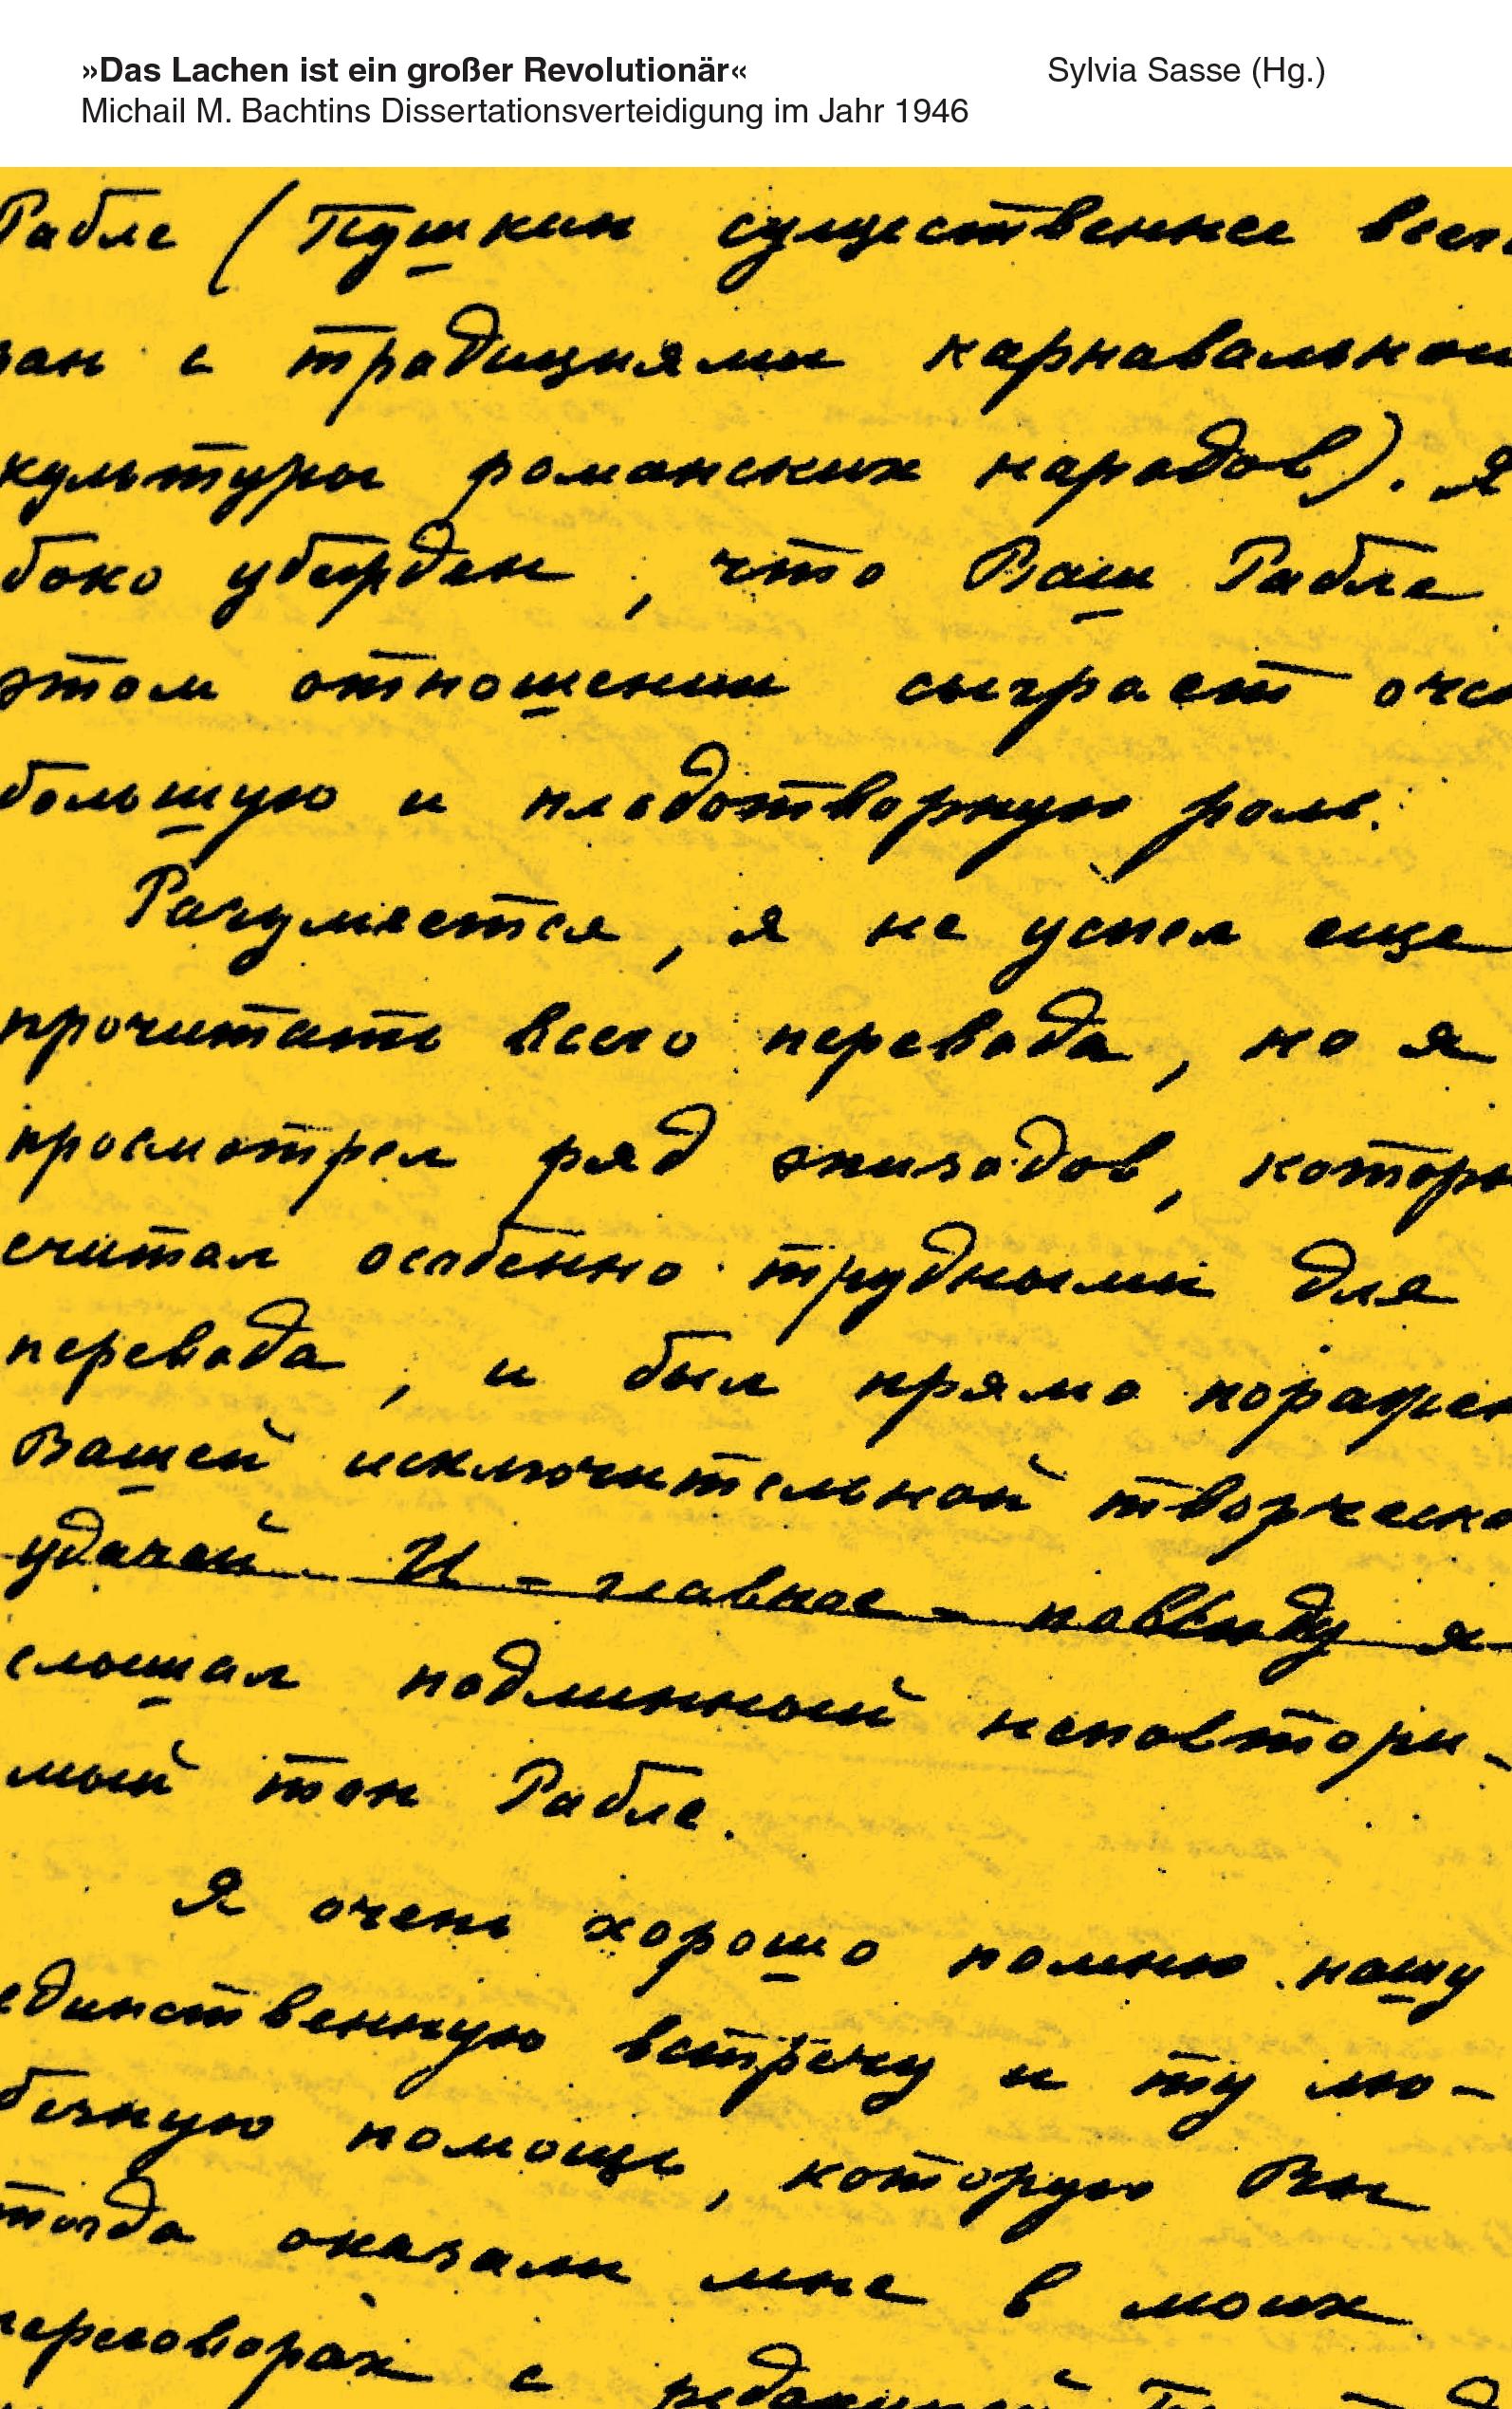 »Das Lachen ist ein großer Revolutionär« Sylvia Sasse (Hg.)
Michail M. Bachtins Dissertationsverteidigung im Jahr 1946
Рабле (Пушкин существеннее всег
зан с традициями карнавальной
культуры романских народов). Я
боко убежден, что Ваш Рабле
этом отношении сыграет оче
большую и плодотворную роль.
Разумеется, я не успел еще
прочитать всего перевода, но я
просмотрел ряд эпизодов, которы
считал особенно трудными для
перевода, и был прямо поражен
Вашей исключительной творческо
удачей. И – главное – повсюду я
слышал подлинный неповтори-
мый тон Рабле.
Я очень хорошо помню нашу
единственную встречу и ту лю-
безную помощь, которую Вы
тогда оказали мне в моих
переговорах с редакцией